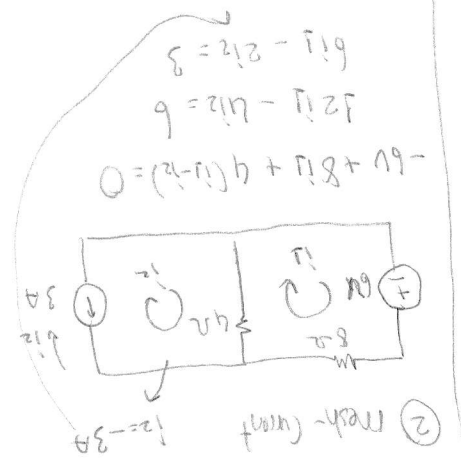 ② Mesh-Current
i2=-3A
8Ω
6V
+
-
i1
4Ω
i2
3A
i2
-6V + 8i1 + 4(i1-i2) = 0
12i1 - 4i2 = 6
6i1 - 2i2 = 3